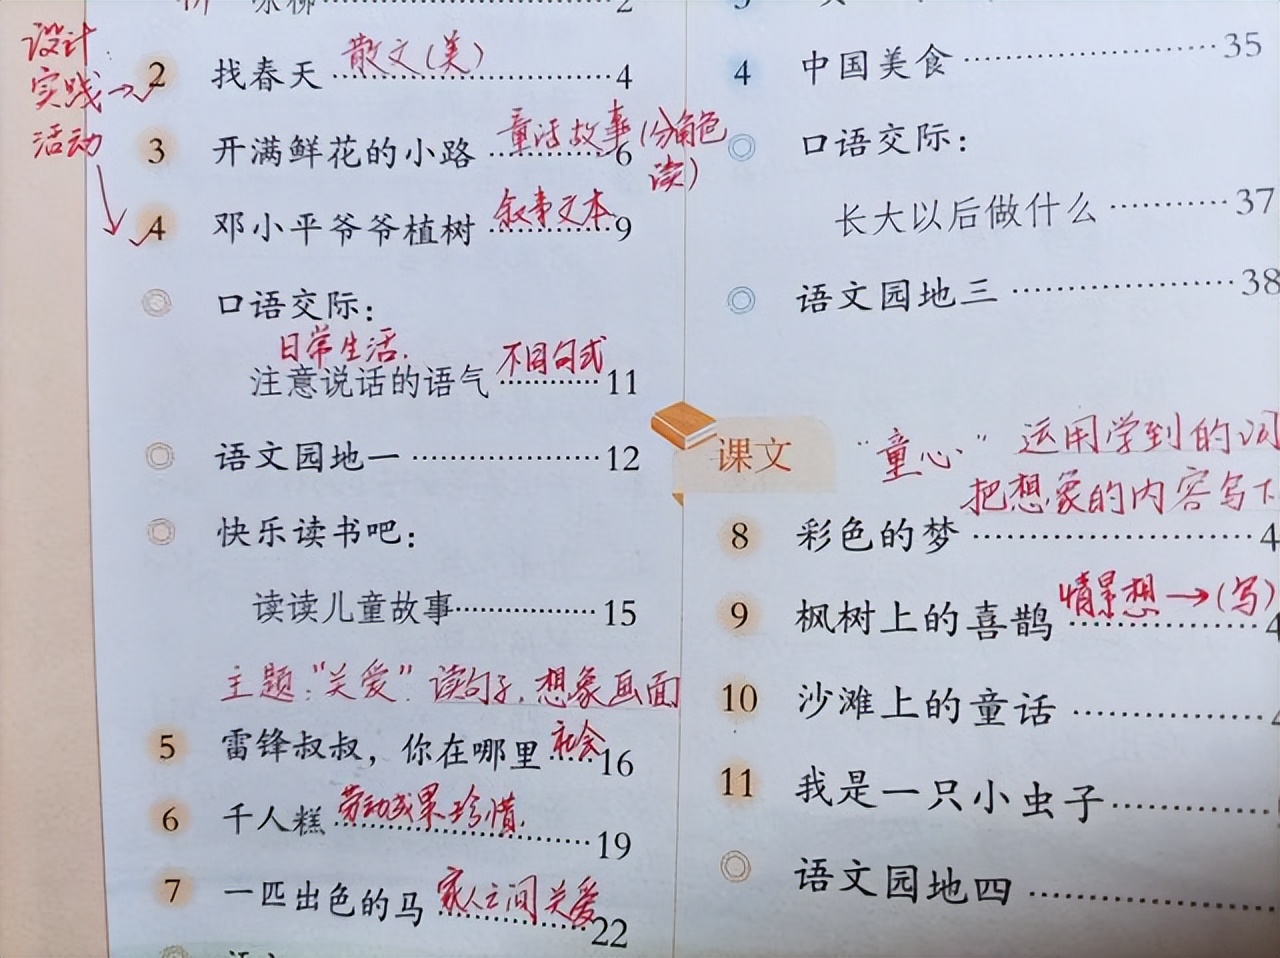 设计
实践→
活动
2 找春天 散文(美) 4
3 开满鲜花的小路 童话故事(分角色读) 6
4 邓小平爷爷植树 叙事文本 9
口语交际：
日常生活.
注意说话的语气 不同句式 11
语文园地一 12
快乐读书吧：
读读儿童故事 15
主题：“关爱” 读句子，想象画面
5 雷锋叔叔，你在哪里 社会 16
6 千人糕 劳动成果珍惜. 19
7 一匹出色的马 家人之间关爱 22
4 中国美食 35
口语交际：
长大以后做什么 37
语文园地三 38
课文 “童心” 运用学到的词
把想象的内容写下
8 彩色的梦 4
9 枫树上的喜鹊 情景想→(写) 4
10 沙滩上的童话
11 我是一只小虫子
语文园地四